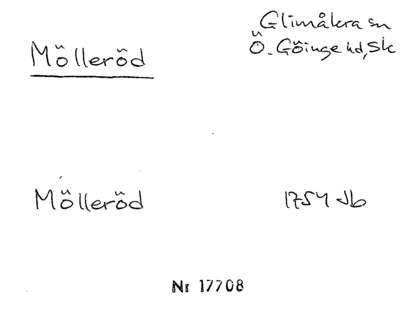 Mölleröd
Glimåkra sn
Ö. Göinge hd, Sk
Mölleröd
1754 Jb
Nr 17708